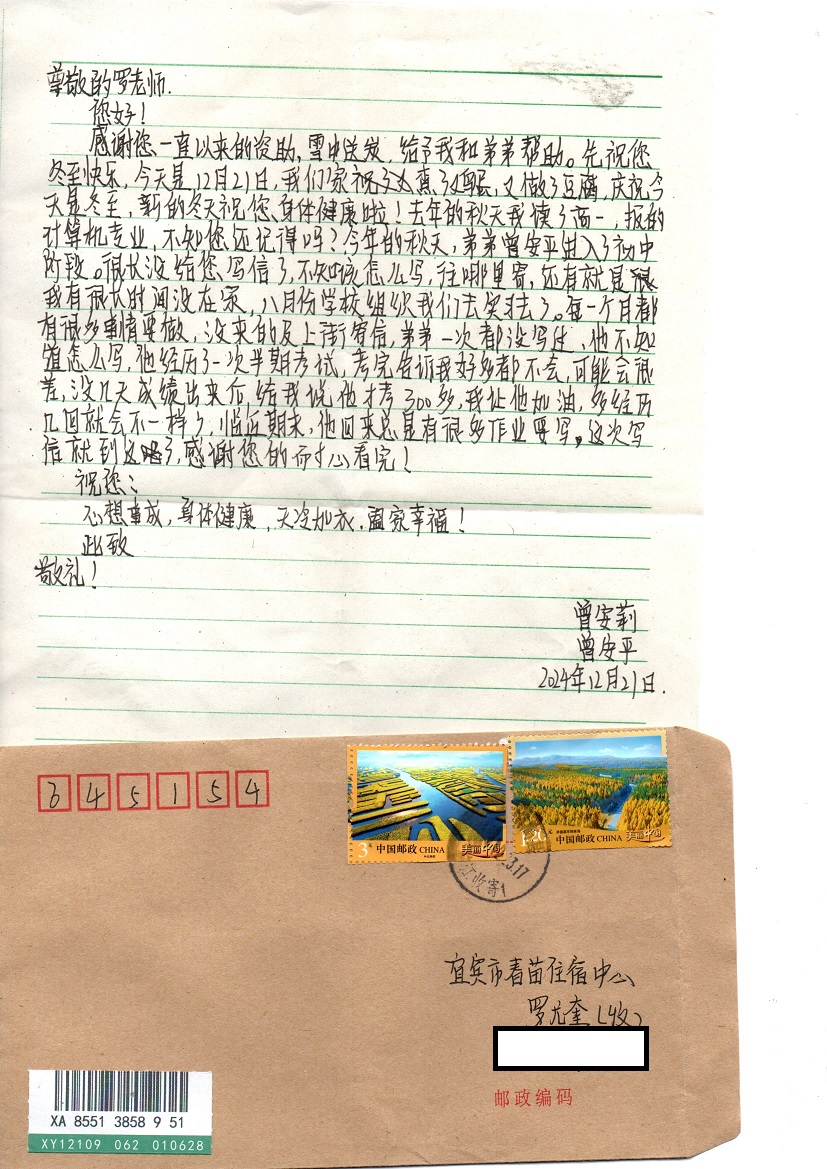 尊敬的罗老师.
您好!
感谢您一直以来的资助,雪中送炭,给予我和弟弟帮助。先祝您
冬至快乐,今天是12月21日,我们家祝 又做了豆腐,庆祝今
天是冬至,新的冬天祝您、身体健康啦!去年的秋天我读了高一,报的
计算机专业,不知您还记得吗?今年的秋天,弟弟曾安平进入了初中
阶段。很长没给您写信了,不知该怎么写,往哪里寄,还有就是很
我有很长时间没在家,八月份学校组织我们去实习去了。每一个月都
有很多事情要做,没来的及上街寄信,弟弟一次都没写过、他不知
道怎么写,他经历了一次半期考试,考完告诉我好多都不会,可能会很
差,没几天成绩出来后给我说他才考300多,我让他加油,多经历
几回就会不一样了,临近期末,他回来总是有很多作业要写。这次写
信就到这了,感谢您的耐心看完!
祝您:
心想事成,身体健康,天冷加衣.阖家幸福!
此致
敬礼!
曾安莉
曾安平
2024年12月21日.
645154
3元 中国邮政 CHINA 美丽中国
1.20元 中国邮政 CHINA 美丽中国
3.17
收寄1
宜宾市春苗住宿中心
罗尤奎(收)
邮政编码
XA 8551 3858 9 51
XY12109 062 010628